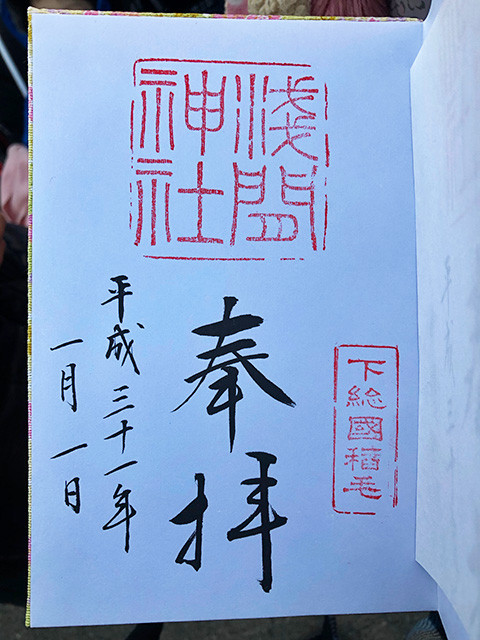 浅間
神社
下総國稲毛
奉拝
平成三十一年
一月一日